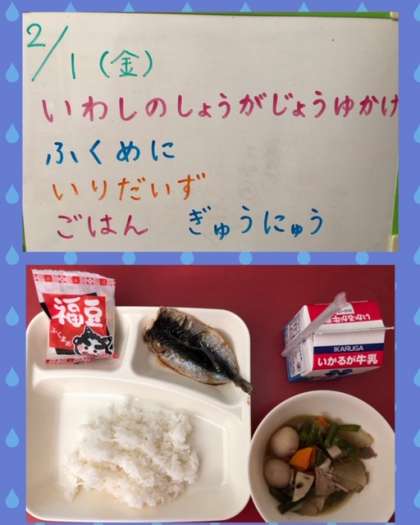 2/1(金)
いわしのしょうがじょうゆかけ
ふくめに
いりだいず
ごはん ぎゅうにゅう
福豆
いかるが牛乳
IKARUGA
いかるが牛乳